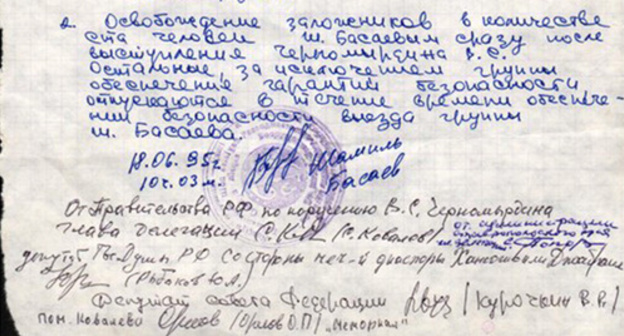 2. Освобождение заложников в количестве
ста человек Ш. Басаевым сразу после
выступления Черномырдина В.С.
Остальные, за исключением группы
обеспечения гарантий безопасности,
отпускаются в течение времени обеспече-
ния безопасности выезда группы
Ш. Басаева.
18.06.95г.
10ч.03м.
Шамиль
Басаев
От Правительства РФ по поручению В.С. Черномырдина
глава делегации (С. Ковалов)
от администрации
Ставропольского края
депутат Гос.Думы РФ со стороны
(Рыбаков Ю.А.)
Депутат Совета Федерации (Курочкин В.Р.)
пом. Ковалева Орлов (Орлов О.П.) "Мемориал"